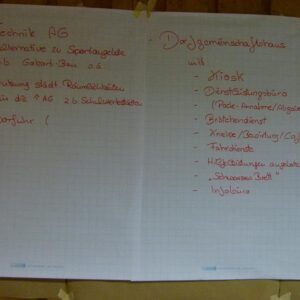 Technik AG
Alternative zu Sportangebote
Gebart-Bau o.ä.
städt. Räumlichkeiten
für die AG z.B. Schulwerkstätten
Dorfgemeinschaftshaus
mit
- Kiosk
- Dienstleistungsbüro
(Pack-Annahme/Abgabe
- Brötchendienst
- Kneipe/Bewirtung/Caf
- Fahrdienste
- Hilfeleistungen angebote
- „Schwarzes Brett"
- Infobüro